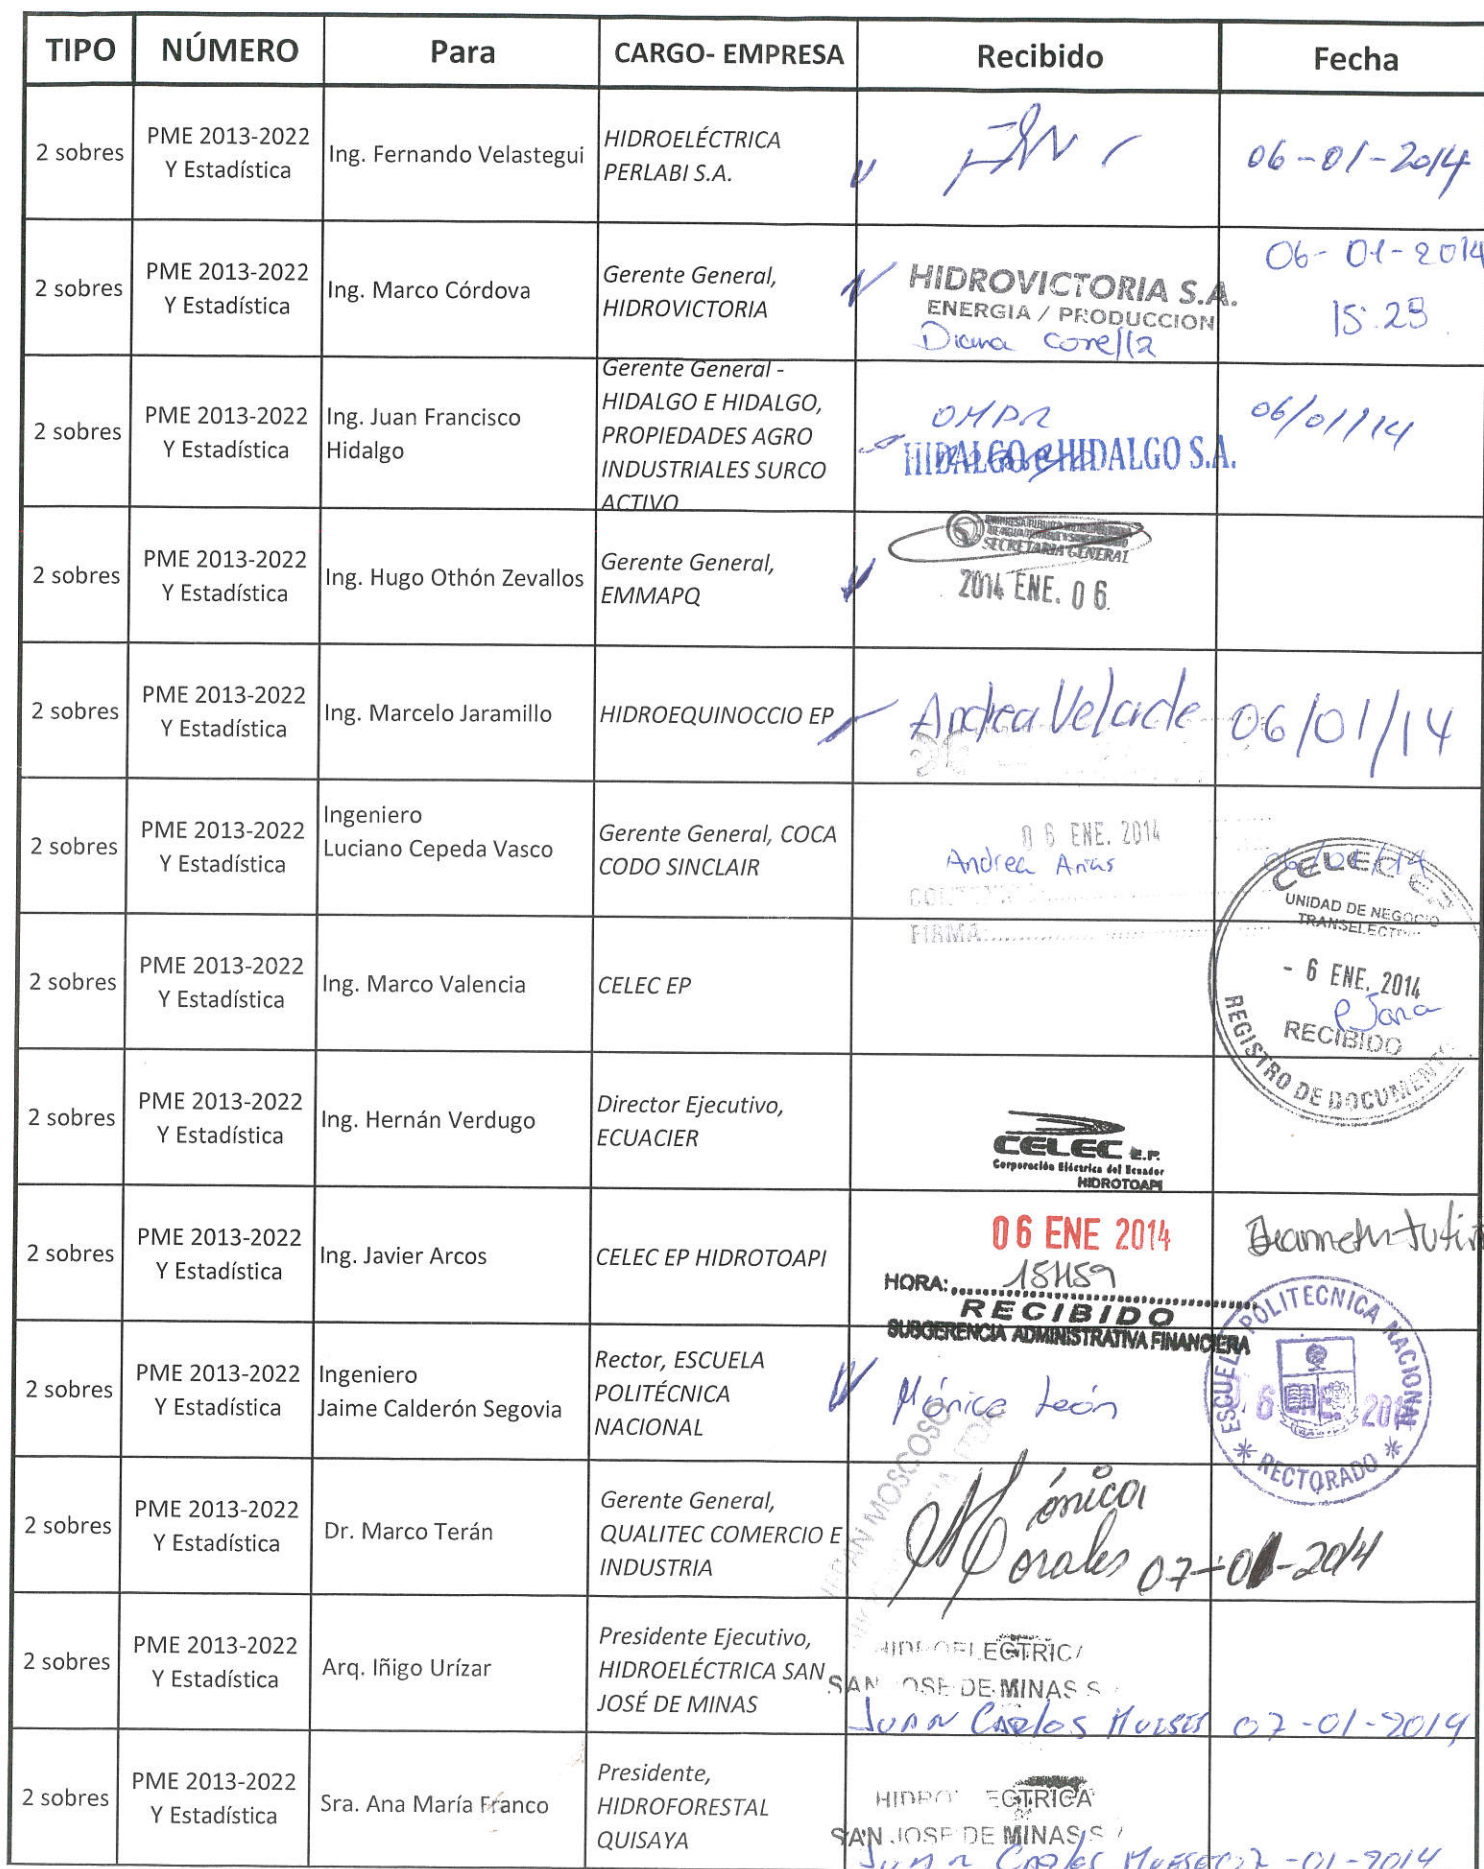 TIPO NÚMERO Para CARGO- EMPRESA Recibido Fecha
2 sobres PME 2013-2022 Y Estadística Ing. Fernando Velastegui HIDROELÉCTRICA PERLABI S.A. 06-01-2014
2 sobres PME 2013-2022 Y Estadística Ing. Marco Córdova Gerente General, HIDROVICTORIA
HIDROVICTORIA S.A.
ENERGIA / PRODUCCION
Diana
06-01-2014
2 sobres PME 2013-2022 Y Estadística Ing. Juan Francisco Hidalgo Gerente General - HIDALGO E HIDALGO, PROPIEDADES AGRO INDUSTRIALES SURCO ACTIVO
HIDALGO e HIDALGO S.A.
06/01/14
2 sobres PME 2013-2022 Y Estadística Ing. Hugo Othón Zevallos Gerente General, EMMAPQ
SECRETARIA GENERAL
2014 ENE. 06
2 sobres PME 2013-2022 Y Estadística Ing. Marcelo Jaramillo HIDROEQUINOCCIO EP Andrea 06/01/14
2 sobres PME 2013-2022 Y Estadística Ingeniero Luciano Cepeda Vasco Gerente General, COCA CODO SINCLAIR
06 ENE. 2014
Andrea Arias
06/01/14
FIRMA:
2 sobres PME 2013-2022 Y Estadística Ing. Marco Valencia CELEC EP
CELEC EP
UNIDAD DE NEGOCIO
- 6 ENE. 2014
RECIBIDO
REGISTRO DE
2 sobres PME 2013-2022 Y Estadística Ing. Hernán Verdugo Director Ejecutivo, ECUACIER
CELEC E.P.
Corporación Eléctrica del Ecuador
HIDROTOAPI
2 sobres PME 2013-2022 Y Estadística Ing. Javier Arcos CELEC EP HIDROTOAPI
06 ENE 2014
HORA: 15H59
RECIBIDO
SUBGERENCIA ADMINISTRATIVA FINANCIERA
2 sobres PME 2013-2022 Y Estadística Ingeniero Jaime Calderón Segovia Rector, ESCUELA POLITÉCNICA NACIONAL
Mónica León
ESCUELA POLITECNICA NACIONAL
6 ENE. 2014
* RECTORADO *
2 sobres PME 2013-2022 Y Estadística Dr. Marco Terán Gerente General, QUALITEC COMERCIO E INDUSTRIA
MOSCOSO
Mónica
Morales 07-01-2014
2 sobres PME 2013-2022 Y Estadística Arq. Iñigo Urízar Presidente Ejecutivo, HIDROELÉCTRICA SAN JOSÉ DE MINAS
SAN JOSE DE MINAS S
Juan Carlos 07-01-2014
2 sobres PME 2013-2022 Y Estadística Sra. Ana María Franco Presidente, HIDROFORESTAL QUISAYA
SAN JOSE DE MINAS S
Juan Carlos 07-01-2014